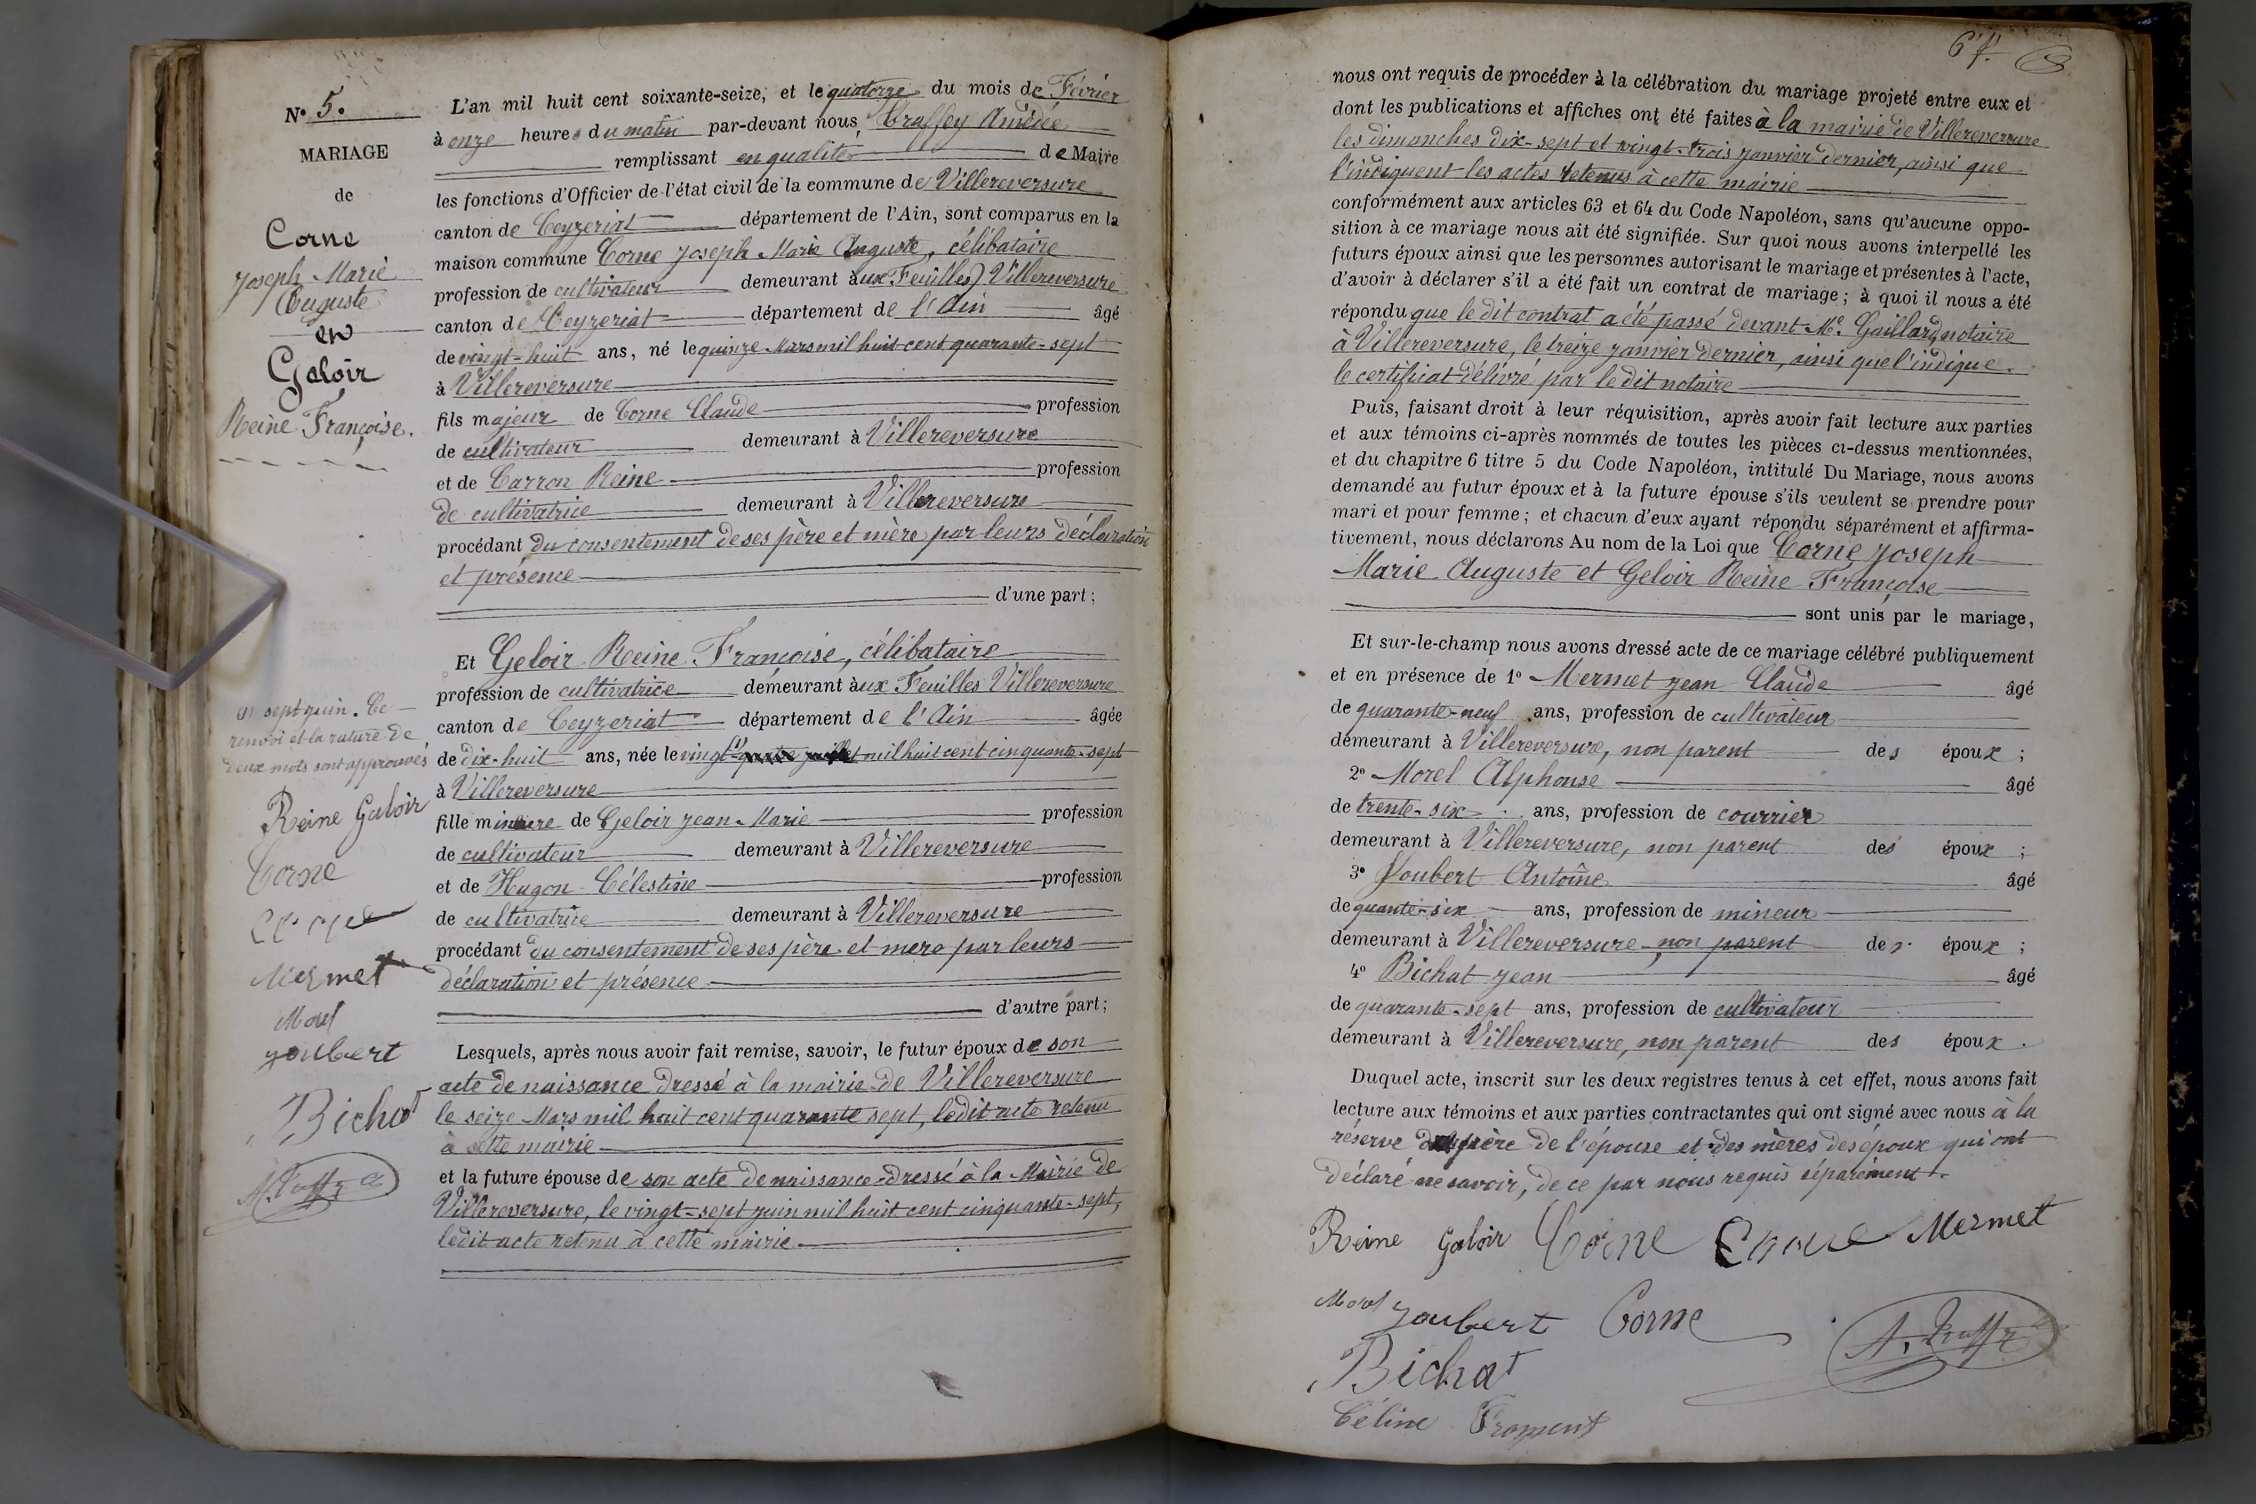 N° 5.
MARIAGE
de
Corne
Joseph Marie
Auguste
en
Galoir
Reine Françoise.
L'an mil huit cent soixante-seize, et le quatorze du mois de Février
à onze heures du matin par-devant nous, Amédée
remplissant en qualité de Maire
les fonctions d'Officier de l'état civil de la commune de Villereversure
canton de Ceyzeriat département de l'Ain, sont comparus en la
maison commune Corne Joseph Marie Auguste, célibataire
profession de cultivateur demeurant aux Feuilles) Villereversure
canton de Ceyzeriat département de l'Ain âgé
de vingt-huit ans, né le quinze Mars mil huit cent quarante-sept
à Villereversure
fils majeur de Corne Claude profession
de cultivateur demeurant à Villereversure
et de Carron Reine profession
de cultivatrice demeurant à Villereversure
procédant du consentement de ses père et mère par leurs déclaration
et présence
d'une part;
Et Geloir Reine Françoise, célibataire
profession de cultivatrice demeurant aux Feuilles Villereversure
canton de Ceyzeriat département de l'Ain âgée
de dix-huit ans, née le vingt-quatre juillet mil huit cent cinquante-sept
à Villereversure
fille mineure de Geloir Jean-Marie profession
de cultivateur demeurant à Villereversure
et de Hugon Célestine profession
de cultivatrice demeurant à Villereversure
procédant du consentement de ses père et mère par leurs
déclaration et présence
d'autre part;
Lesquels, après nous avoir fait remise, savoir, le futur époux de son
acte de naissance dressé à la mairie de Villereversure
le seize Mars mil huit cent quarante sept, ledit acte retenu
à cette mairie
et la future épouse de son acte de naissance dressé à la Mairie de
Villereversure, le vingt-sept juin mil huit cent cinquante-sept,
ledit acte retenu à cette mairie
sept juin. Ce
renvoi et la rature de
deux mots sont approuvés
Reine Galoir
Corne
Mermet
Morel
Joubert
Bichat
67.
nous ont requis de procéder à la célébration du mariage projeté entre eux et
dont les publications et affiches ont été faites à la mairie de Villereversure
les dimanches dix-sept et vingt-trois janvier dernier, ainsi que
l'indiquent les actes retenus à cette mairie
conformément aux articles 63 et 64 du Code Napoléon, sans qu'aucune oppo-
sition à ce mariage nous ait été signifiée. Sur quoi nous avons interpellé les
futurs époux ainsi que les personnes autorisant le mariage et présentes à l'acte,
d'avoir à déclarer s'il a été fait un contrat de mariage; à quoi il nous a été
répondu que le dit contrat a été passé devant Me. Gaillard notaire
à Villereversure, le treize janvier dernier, ainsi que l'indique
le certificat délivré par le dit notaire
Puis, faisant droit à leur réquisition, après avoir fait lecture aux parties
et aux témoins ci-après nommés de toutes les pièces ci-dessus mentionnées,
et du chapitre 6 titre 5 du Code Napoléon, intitulé Du Mariage, nous avons
demandé au futur époux et à la future épouse s'ils veulent se prendre pour
mari et pour femme; et chacun d'eux ayant répondu séparément et affirma-
tivement, nous déclarons Au nom de la Loi que Corne Joseph
Marie Auguste et Geloir Reine Françoise
sont unis par le mariage,
Et sur-le-champ nous avons dressé acte de ce mariage célébré publiquement
et en présence de 1° Mermet Jean Claude âgé
de quarante-neuf ans, profession de cultivateur
demeurant à Villereversure, non parent des époux;
2° Morel Alphonse âgé
de trente-six ans, profession de courrier
demeurant à Villereversure, non parent des époux;
3° Joubert Antoine âgé
de quante-six ans, profession de mineur
demeurant à Villereversure, non parent des époux;
4° Bichat Jean âgé
de quarante-sept ans, profession de cultivateur
demeurant à Villereversure, non parent des époux.
Duquel acte, inscrit sur les deux registres tenus à cet effet, nous avons fait
lecture aux témoins et aux parties contractantes qui ont signé avec nous à la
réserve du père de l'épouse et des mères des époux qui ont
déclaré ne savoir, de ce par nous requis séparément.
Reine Galoir Corne Mermet
Morel Joubert Corne
Bichat
Céline Froment